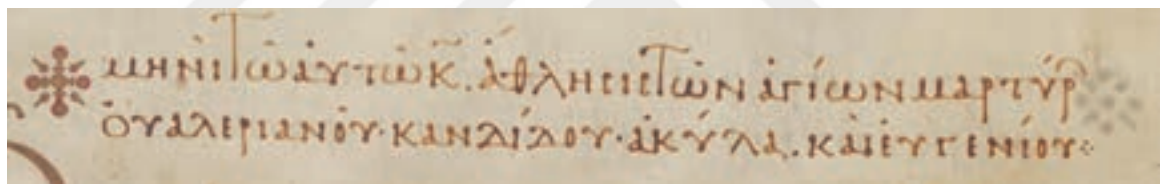 μηνὶ τῶ ἀυτῶ κ̅. ἄθλησις τῶν ἁγίων μαρτύρ
ὀυαλεριανοῦ· κανδίδου· ἀκύλα. καὶ ἐυγενίου: